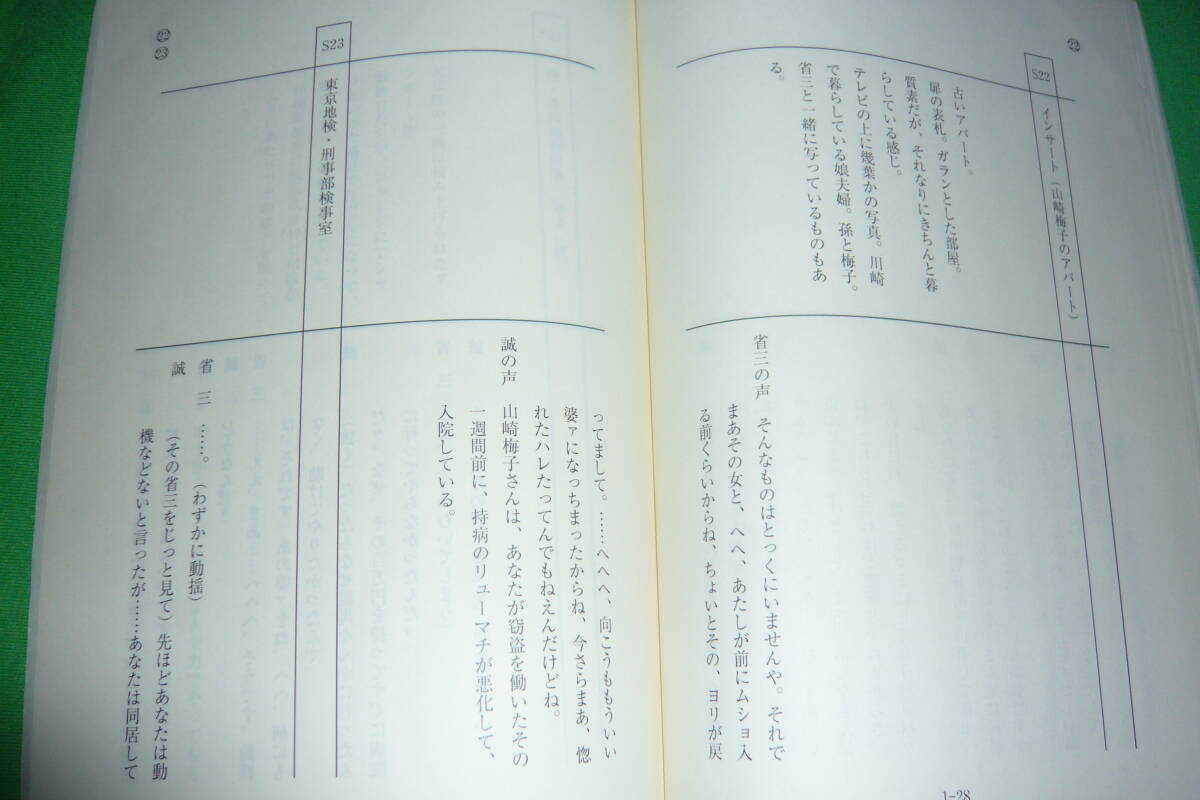 ㉒
S22 インサート(山崎梅子のアパート)
古いアパート。
扉の表札。ガランとした部屋。
質素だが、それなりにきちんと暮
らしている感じ。
テレビの上に幾葉かの写真。川崎
で暮らしている娘夫婦。孫と梅子。
省三と一緒に写っているものもあ
る。
省三の声 そんなものはとっくにいませんや。それで
まあその女と、へへ、あたしが前にムショ入
る前くらいからね、ちょいとその、ヨリが戻
1-28
ってまして。……へへへ、向こうももういい
婆ァになっちまったからね、今さらまあ、惚
れたハレたってんでもねえんだけどね。
誠の声 山崎梅子さんは、あなたが窃盗を働いたその
一週間前に、持病のリューマチが悪化して、
入院している。
㉒
㉓
S23 東京地検・刑事部検事室
省三 ……。(わずかに動揺)
誠 (その省三をじっと見て)先ほどあなたは動
機などないと言ったが……あなたは同居して